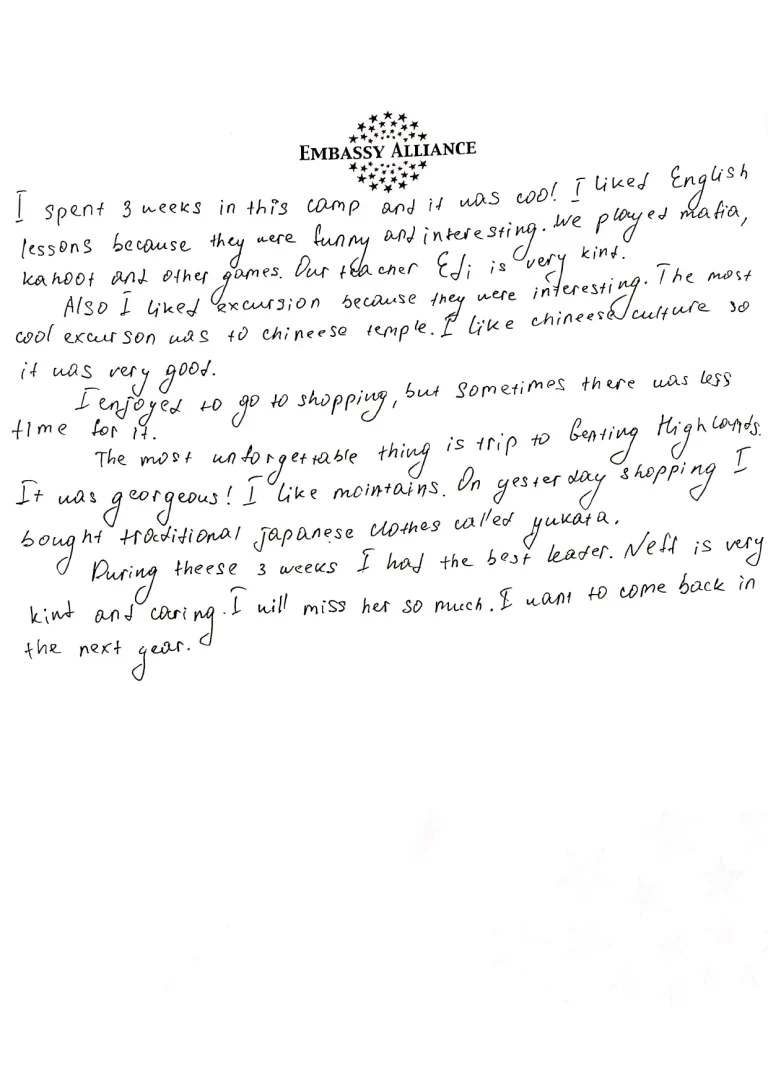 EMBASSY ALLIANCE
I spent 3 weeks in this camp and it was cool! I liked English
lessons because they were funny and interesting. We played mafia,
kahoot and other games. Our teacher Edi is very kind.
Also I liked excursion because they were interesting. The most
cool excurson was to chineese temple. I like chineese culture so
it was very good.
I enjoyed to go to shopping, but sometimes there was less
time for it.
The most unforgettable thing is trip to Genting Highlands.
It was georgeous! I like mointains. On yesterday shopping I
bought traditional japanese clothes called yukata.
During theese 3 weeks I had the best leader. Neff is very
kind and caring. I will miss her so much. I want to come back in
the next year.